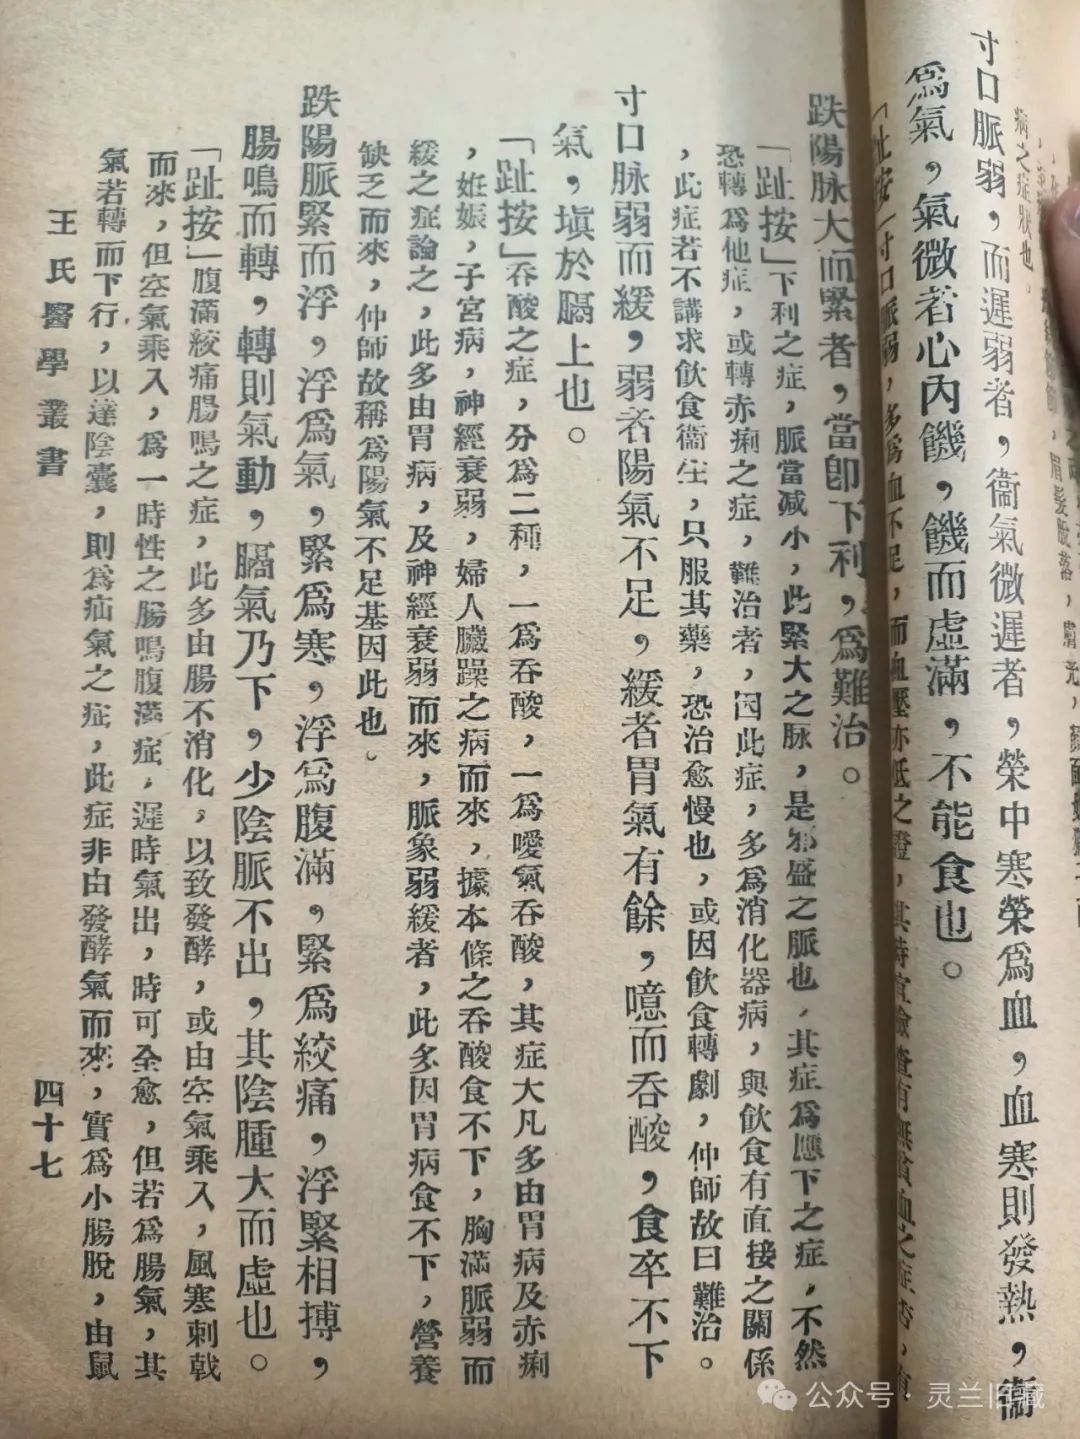 病之症狀也。
寸口脈弱，而遲弱者，衞氣微遲者，榮中寒榮爲血，血寒則發熱，衞
爲氣，氣微者心內饑，饑而虛滿，不能食也。
「趾按」寸口脈弱，多爲血不足，而血壓亦低之證，其時宜檢查有無貧血之症否，有
趺陽脉大而緊者，當卽下利，爲難治。
「趾按」下利之症，脈當減小，此緊大之脉，是邪盛之脈也，其症爲應下之症，不然
恐轉爲他症，或轉赤痢之症，難治者，因此症，多爲消化器病，與飲食有直接之關係
，此症若不講求飲食衞生，只服其藥，恐治愈慢也，或因飲食轉劇，仲師故曰難治。
寸口脉弱而緩，弱者陽氣不足，緩者胃氣有餘，噫而吞酸，食卒不下
氣，塡於膈上也。
「趾按」吞酸之症，分爲二種，一爲吞酸，一爲噯氣吞酸，其症大凡多由胃病及赤痢
，姙娠，子宮病，神經衰弱，婦人臟躁之病而來，據本條之吞酸食不下，胸滿脈弱而
緩之症論之，此多由胃病，及神經衰弱而來，脈象弱緩者，此多因胃病食不下，營養
缺乏而來，仲師故稱爲陽氣不足基因此也。
趺陽脈緊而浮，浮爲氣，緊爲寒，浮爲腹滿，緊爲絞痛，浮緊相搏，
腸鳴而轉，轉則氣動，膈氣乃下，少陰脈不出，其陰腫大而虛也。
「趾按」腹滿絞痛腸鳴之症，此多由腸不消化，以致發酵，或由空氣乘入，風寒刺戟
而來，但空氣乘入，爲一時性之腸鳴腹滿症，遲時氣出，時可全愈，但若爲腸氣，其
氣若轉而下行，以達陰囊，則爲疝氣之症，此症非由發酵氣而來，實爲小腸脫，由鼠
王氏醫學叢書
四十七
公众号·灵兰旧藏